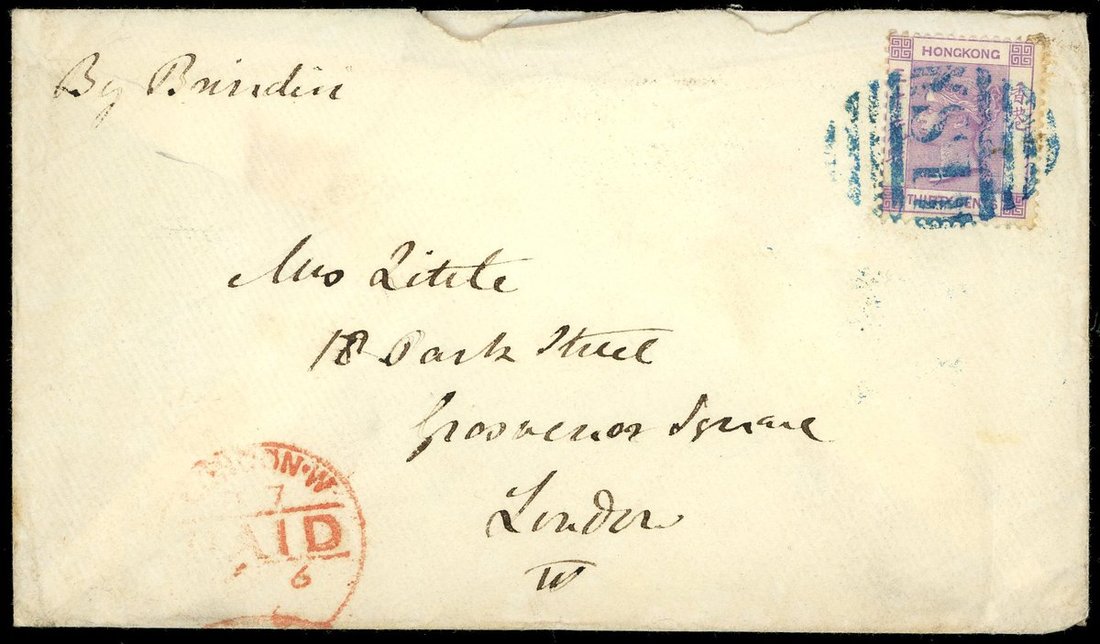 By Brindisi
HONGKONG
香港
S1
THIRTY CENTS
Mrs Little
18 Park Street
Grosvenor Square
London
W
LONDON·W
7
PAID
6